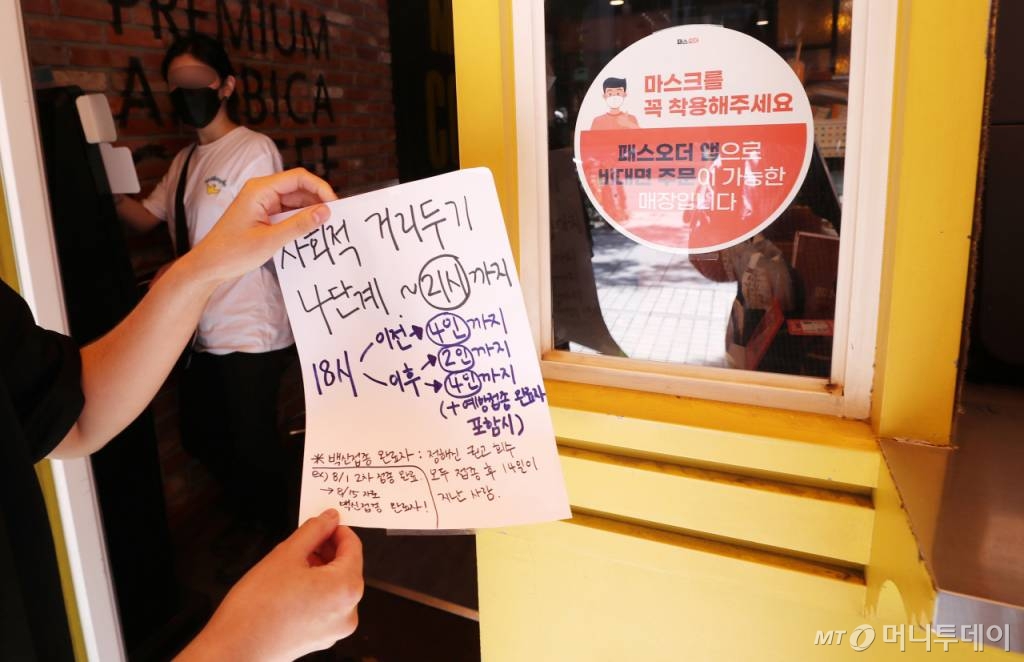 PREMIUM
ARABICA
패스오더
마스크를
꼭 착용해주세요
패스오더 앱으로
비대면 주문이 가능한
매장입니다
사회적 거리두기
4단계. ~21시까지
18시
이전→4인까지
이후→2인까지
→4인까지
(+예방접종 완료자
포함시)
※ 백신접종 완료자 : 정해진 권고 회수
모두 접종 후 14일이
지난 사람.
ex) 8/1 2차 접종 완료
→ 8/15 자로
백신접종 완료자!
MT 머니투데이